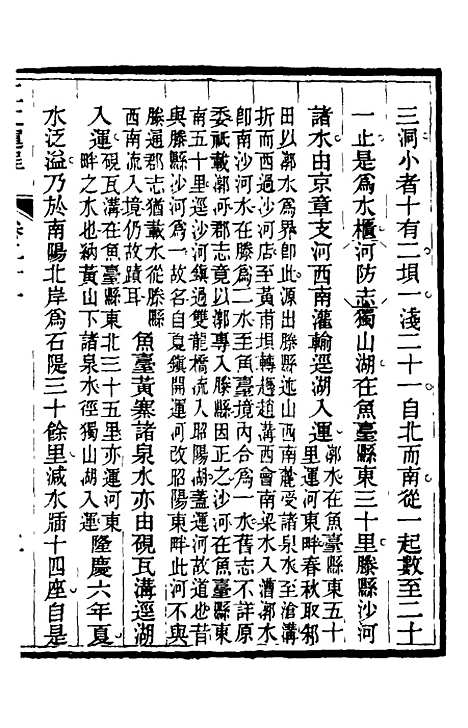 三洞小者十有二壩一淺二十一自北而南從一起數至二十
一止是爲水櫃河防志獨山湖在魚臺縣東三十里滕縣沙河
諸水由京章支河西南灌輸逕湖入運漷水在魚臺縣東五十
里運河東畔春秋取邾
田以漷水爲界卽此源出滕縣述山西南麓受諸泉水至滄溝
折而西過沙河店至黃甫壩轉趙溝西會南梁水入漕漷水
卽南沙河水在滕爲二水至魚臺境內合爲一水舊志不詳原
委祇載漷河郡志竟以漷專入滕縣因正之沙河在魚臺縣東
南五十里逕沙河鎮過雙龍橋流入昭陽湖蓋運河故道也昔
與滕縣沙河爲一故名自夏鎮開運河改昭陽東畔此河不與
滕通郡志猶載水從滕縣
西南流入境仍故蹟耳
魚臺黃寨諸泉水亦由硯瓦溝逕湖
入運硯瓦溝在魚臺縣東北三十五里亦運河東
畔之水也納黃山下諸泉水徑獨山湖入運
隆慶六年夏
水泛溢乃於南陽北岸爲石隄三十餘里減水牐十四座自是